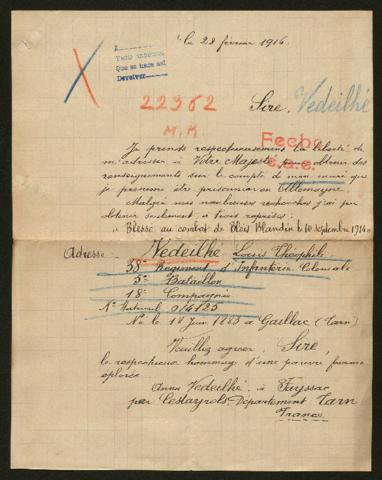 le 28 février 1916.
A
Que se hace así
Devolver
22362
M. M
Sire, Vedeilhé
Je prends respectueusement la liberté de
m'adresser à Votre Majesté pour obtenir des
Fecho
renseignements sur le compte de mon mari que
je présume être prisonnier en Allemagne.
Malgré mes nombreuses recherches j'ai pu
obtenir seulement, à trois reprises:
"Blessé au combat de Blois Blandin le 10 septembre 1914"
Adresse: Vedeilhé Louis Théophile
38e Régiment d'Infanterie Coloniale
5e Bataillon
18e Compagnie
No Matricule 014125
Né le 18 Juin 1883 à Gaillac (Tarn)
Veuillez agréer, Sire,
le respectueux hommage d'une pauvre femme
éplorée
Anna Vedeilhé à Fayssac
par Cestayrols-Département Tarn
France